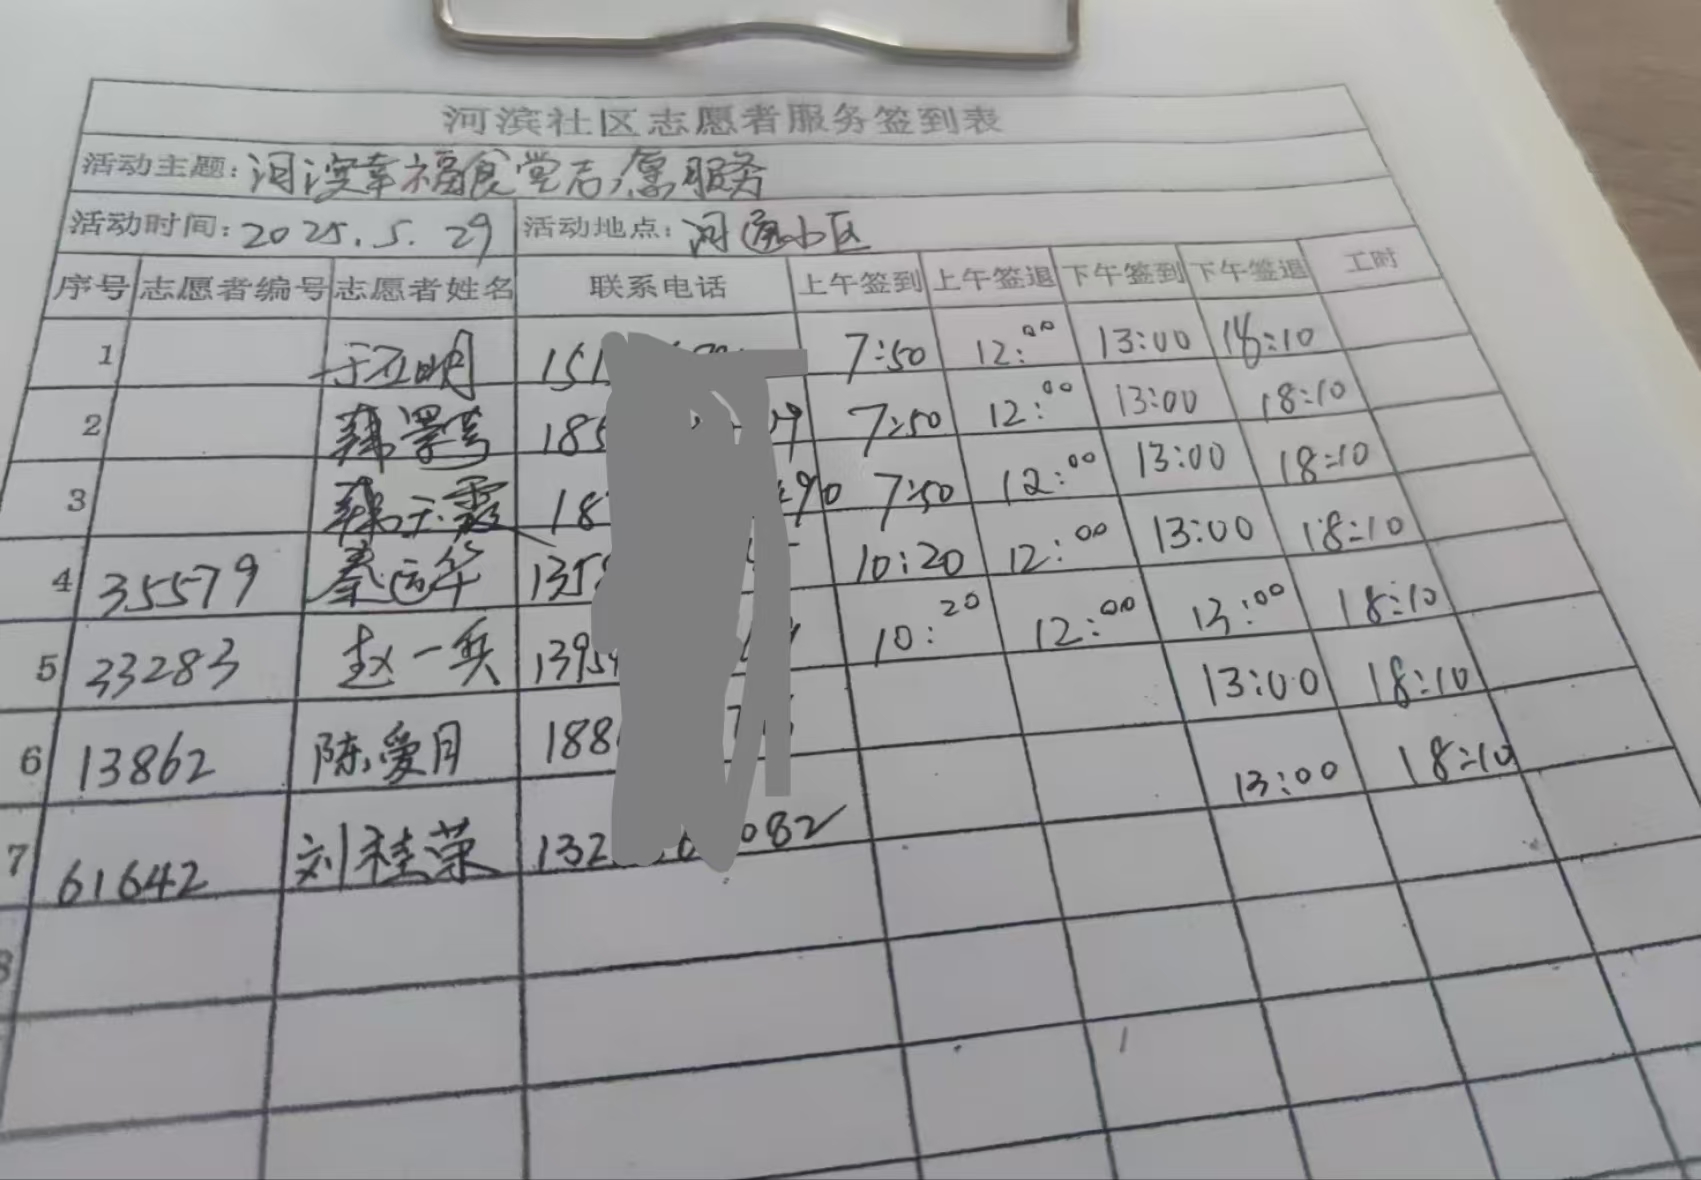 河滨社区志愿者服务签到表
活动主题：河滨幸福食堂志愿服务
活动时间：2025.5.29 活动地点：河通小区
序号 志愿者编号 志愿者姓名 联系电话 上午签到 上午签退 下午签到 下午签退 工时
1 于亚明 151 7:50 12:00 13:00 18:10
2 韩 185 7:50 12:00 13:00 18:10
3 韩云霞 18 90 7:50 12:00 13:00 18:10
4 35579 秦运华 135 10:20 12:00 13:00 18:10
5 33283 赵一兵 1395 10:20 12:00 13:00 18:10
6 13862 陈爱月 188 13:00 18:10
7 61642 刘桂荣 132 082 13:00 18:10